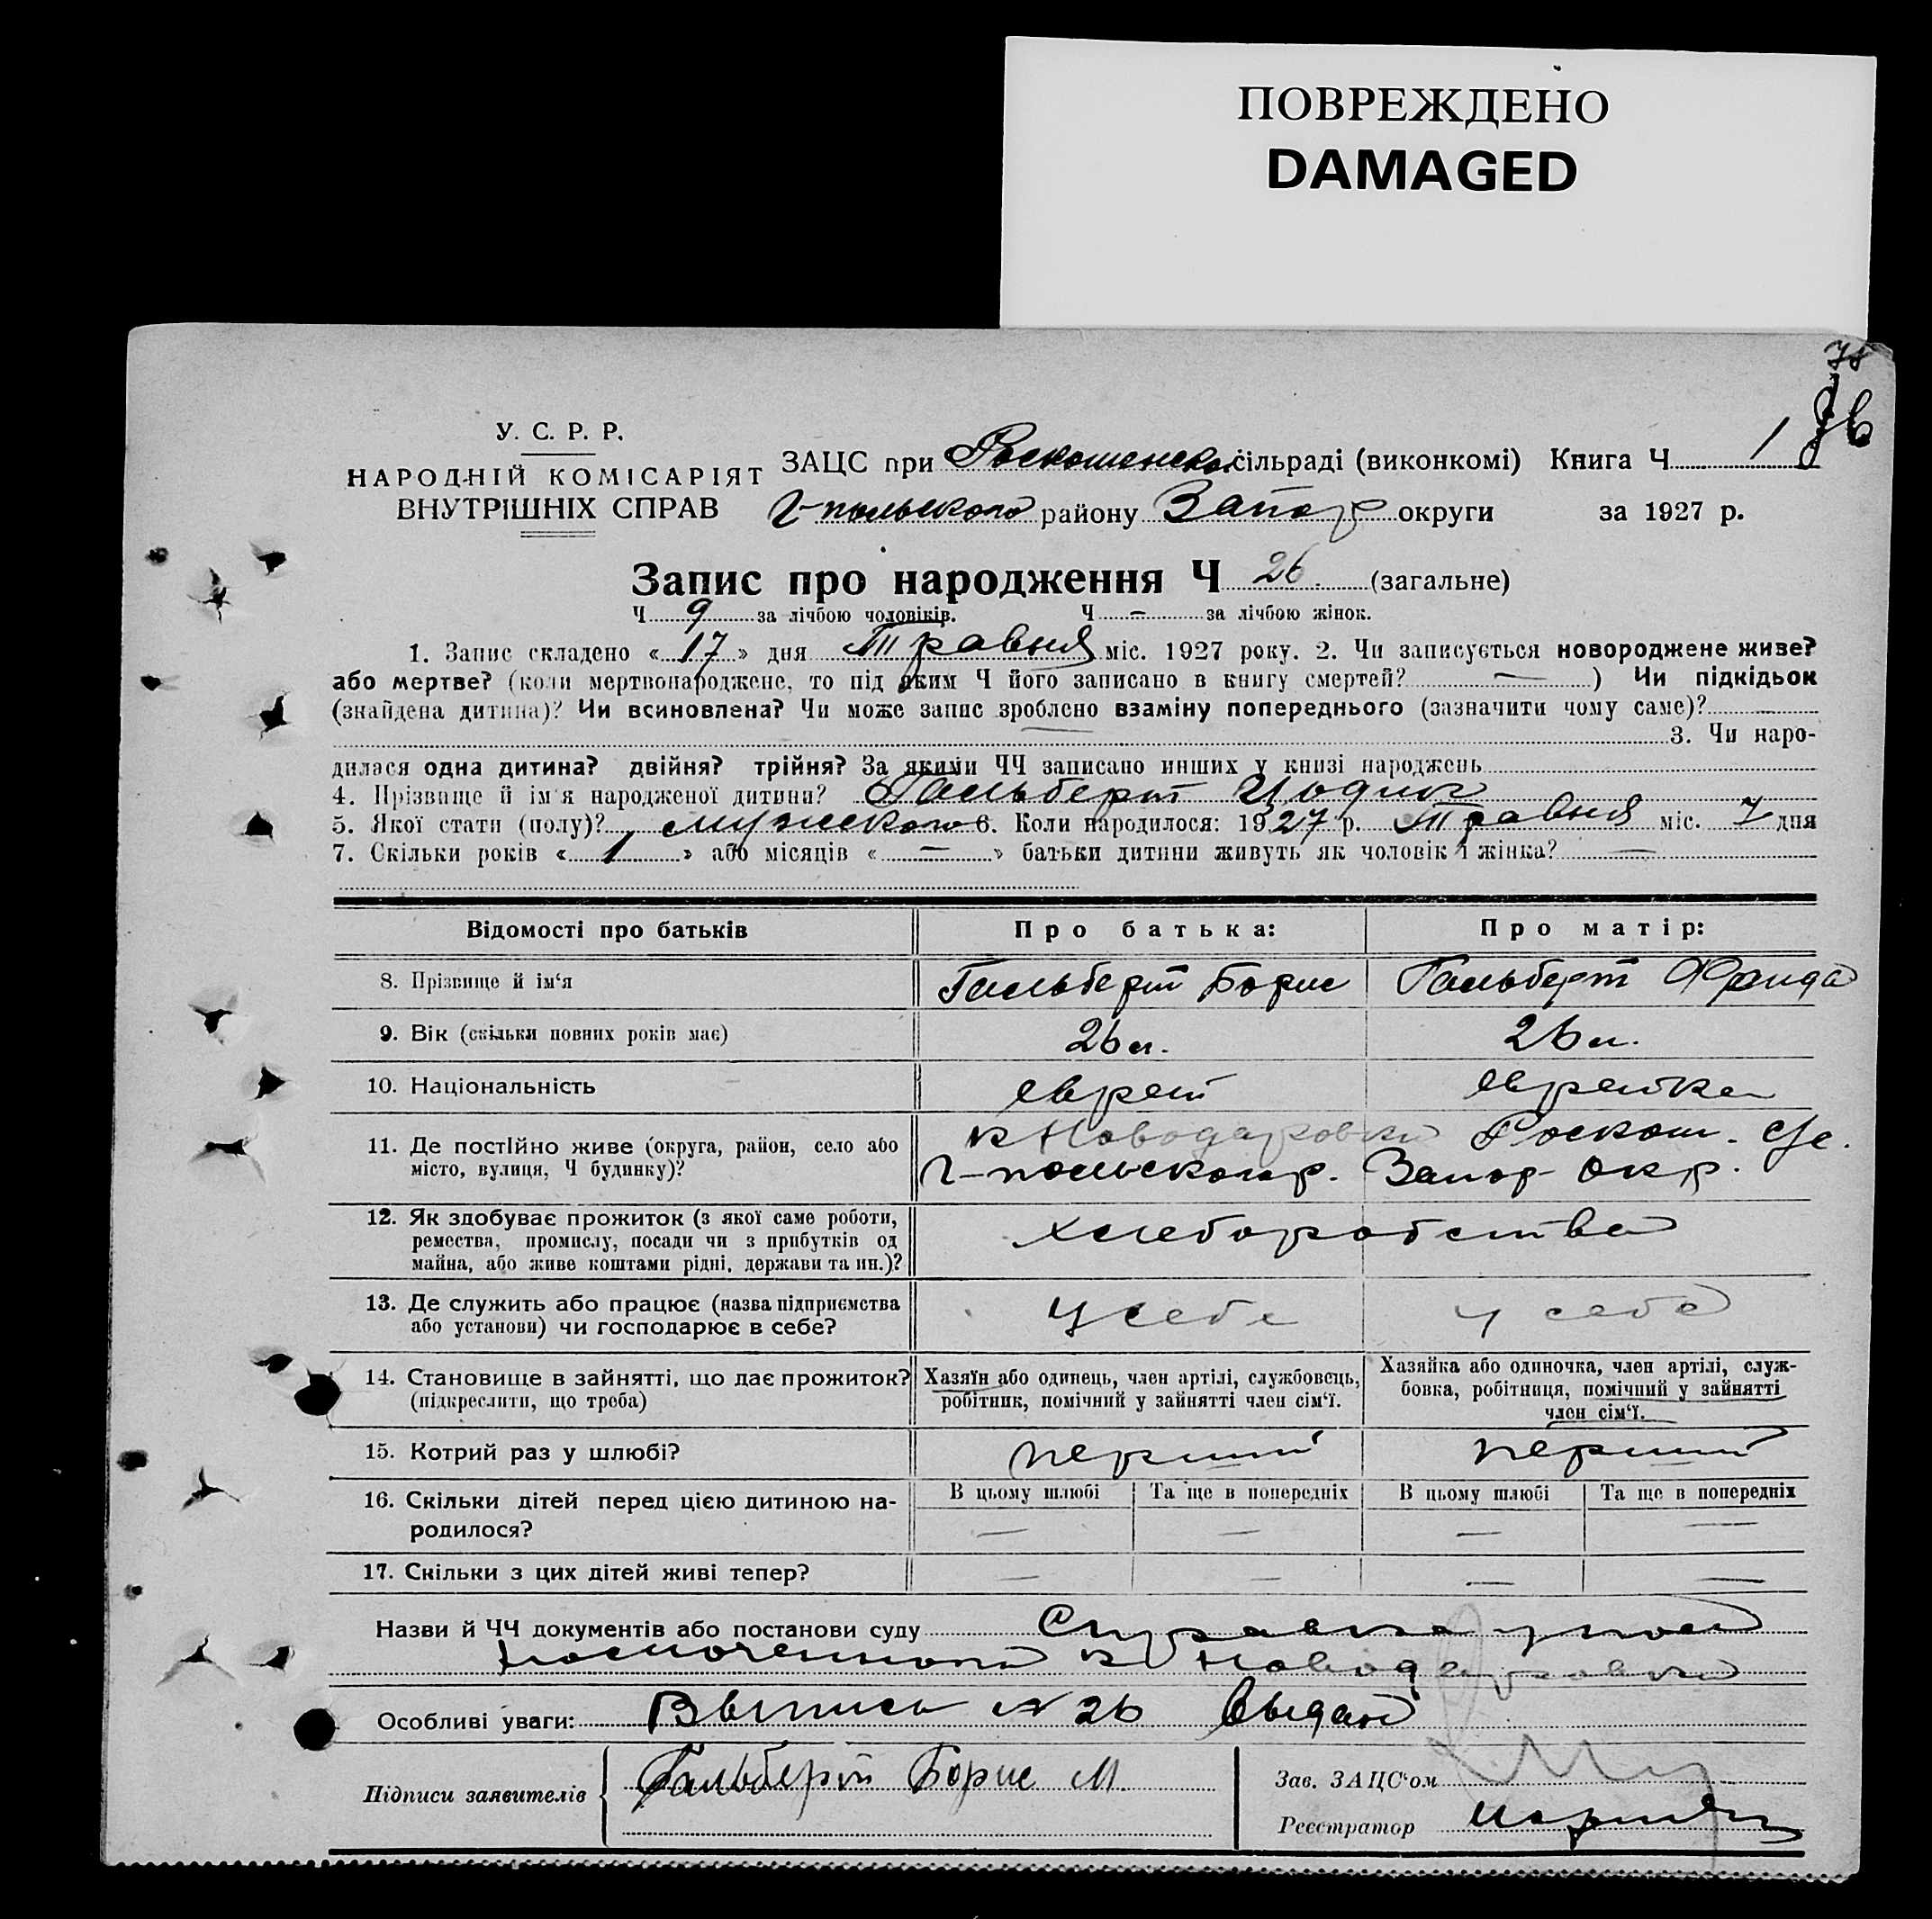 ПОВРЕЖДЕНО
DAMAGED
У. С. Р. Р.
НАРОДНІЙ КОМІСАРІЯТ
ВНУТРІШНІХ СПРАВ
ЗАЦС при Роскошенской сільраді (виконкомі) Книга Ч 1
Г-польского району Запор округи за 1927 р.
Запис про народження Ч 26. (загальне)
Ч 9 за лічбою чоловіків. Ч — за лічбою жінок.
1. Запис складено « 17 » дня Травня міс. 1927 року. 2. Чи записується новороджене живе?
або мертве? (коли мертвонароджене, то під яким Ч його записано в книгу смертей? — ) Чи підкідьок
(знайдена дитина)? Чи всиновлена? Чи може запис зроблено взаміну попереднього (зазначити чому саме)? —
3. Чи наро-
дилася одна дитина? двійня? трійня? За якими ЧЧ записано инших у книзі народжень
4. Прізвище й ім'я народженої дитини? Гальберт
5. Якої стати (полу)? мужского 6. Коли народилося: 1927 р. Травня міс. 7 дня
7. Скільки років « 1 » або місяців « — » батьки дитини живуть як чоловік і жінка? —
Відомості про батьків Про батька: Про матір:
8. Прізвище й ім'я Гальберт Борис Гальберт Фрида
9. Вік (скільки повних років має) 26 л. 26 л.
10. Національність еврей еврейка
11. Де постійно живе (округа, район, село або к Новодаровка Роскош. с/с.
місто, вулиця, Ч будинку)? Г-польског р. Запор окр.
12. Як здобуває прожиток (з якої саме роботи, хлеборобства
ремества, промислу, посади чи з прибутків од
майна, або живе коштами рідні, держави та ин.)?
13. Де служить або працює (назва підприємства у себе у себе
або установи) чи господарює в себе?
14. Становище в зайнятті, що дає прожиток? Хазяїн або одинець, член артілі, службовець, Хазяйка або одиночка, член артілі, служ-
(підкреслити, що треба) робітник, помічний у зайнятті член сім'ї. бовка, робітниця, помічний у зайнятті
член сім'ї.
15. Котрий раз у шлюбі? перший перший
16. Скільки дітей перед цією дитиною на- В цьому шлюбі Та ще в попередніх В цьому шлюбі Та ще в попередніх
родилося? — — — —
17. Скільки з цих дітей живі тепер? — — — —
Назви й ЧЧ документів або постанови суду Справка упол
номоченного к Новодаровки
Особливі уваги: Выпись № 26 выдан
Підписи заявителів Гальберт Борис М. Зав. ЗАЦС'ом
Реєстратор